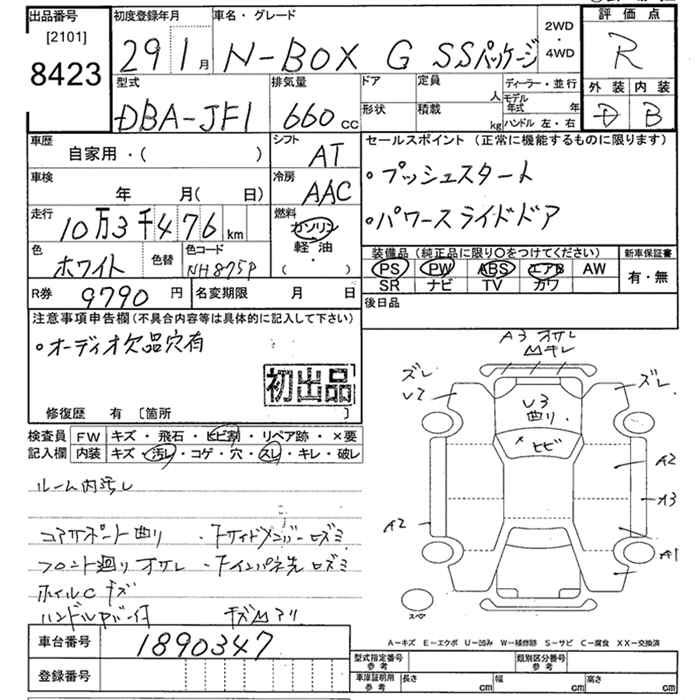 出品番号 [2101] 8423
初度登録年月 29 1月
車名・グレード N-BOX G SSパッケージ
2WD・4WD
評価点 R
外装 D 内装 B
型式 DBA-JF1
排気量 660cc
ドア 形状
定員 人 積載 kg
ディーラー・並行
モデル年式 年
ハンドル 左・右
車歴 自家用・( )
シフト AT
セールスポイント(正常に機能するものに限ります)
・プッシュスタート
・パワースライドドア
車検 年 月( 日)
冷房 AAC
走行 10万3千476km
燃料 ガソリン 軽・油 ( ・ )
色 ホワイト 色替 色コード NH875P
装備品(純正品に限り○をつけてください)
PS PW ABS エアB AW
SR ナビ TV カワ
新車保証書 有・無
R券 9790円
名変期限 月 日
後日品
注意事項申告欄(不具合内容等は具体的に記入して下さい)
・オーディオ欠品穴有
初出品
修復歴 有 [箇所 ]
検査員記入欄
FW キズ・飛石・ヒビ割・リペア跡・×要
内装 キズ・汚レ・コゲ・穴・スレ・キレ・破レ
ルーム内汚レ
コアサポート曲リ ・下サイドメンバーロズミ
フロント廻リオサレ ・下インパネ先ロズミ
ホイルCキズ
A3 オサレ
キレ
ズレ
U2
ズレ
U3
曲リ
ヒビ
A2
A3
A2
A1
スペア
車台番号 1890347
登録番号
A-キズ E-エクボ U-凹み W-補修跡 S-サビ C-腐食 XX-交換済
型式指定番号 参考
類別区分番号 参考
車庫証明用 参考
長さ cm 幅 cm 高さ cm